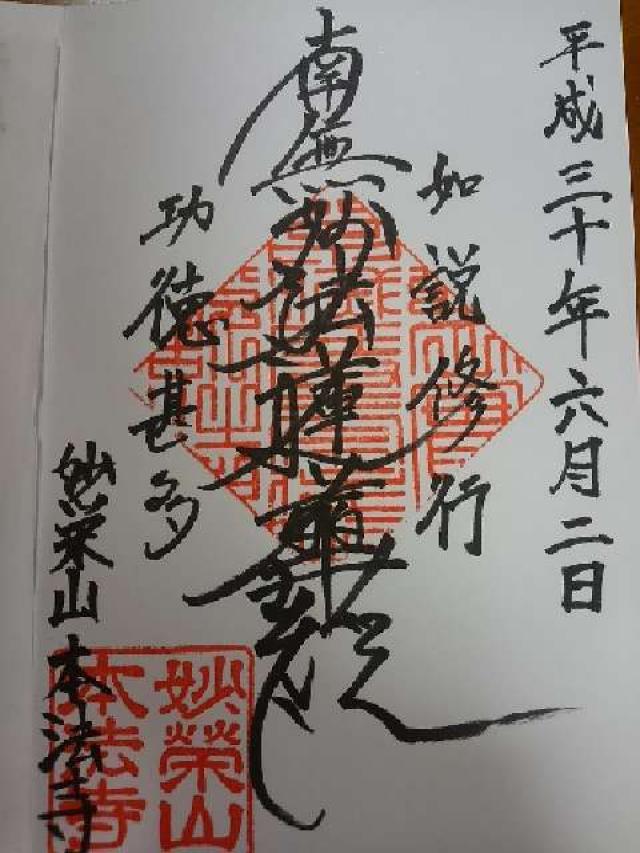 平成三十年六月二日
如説修行
南無妙法蓮華経
功徳甚多
妙栄山本法寺
妙榮山
本法寺